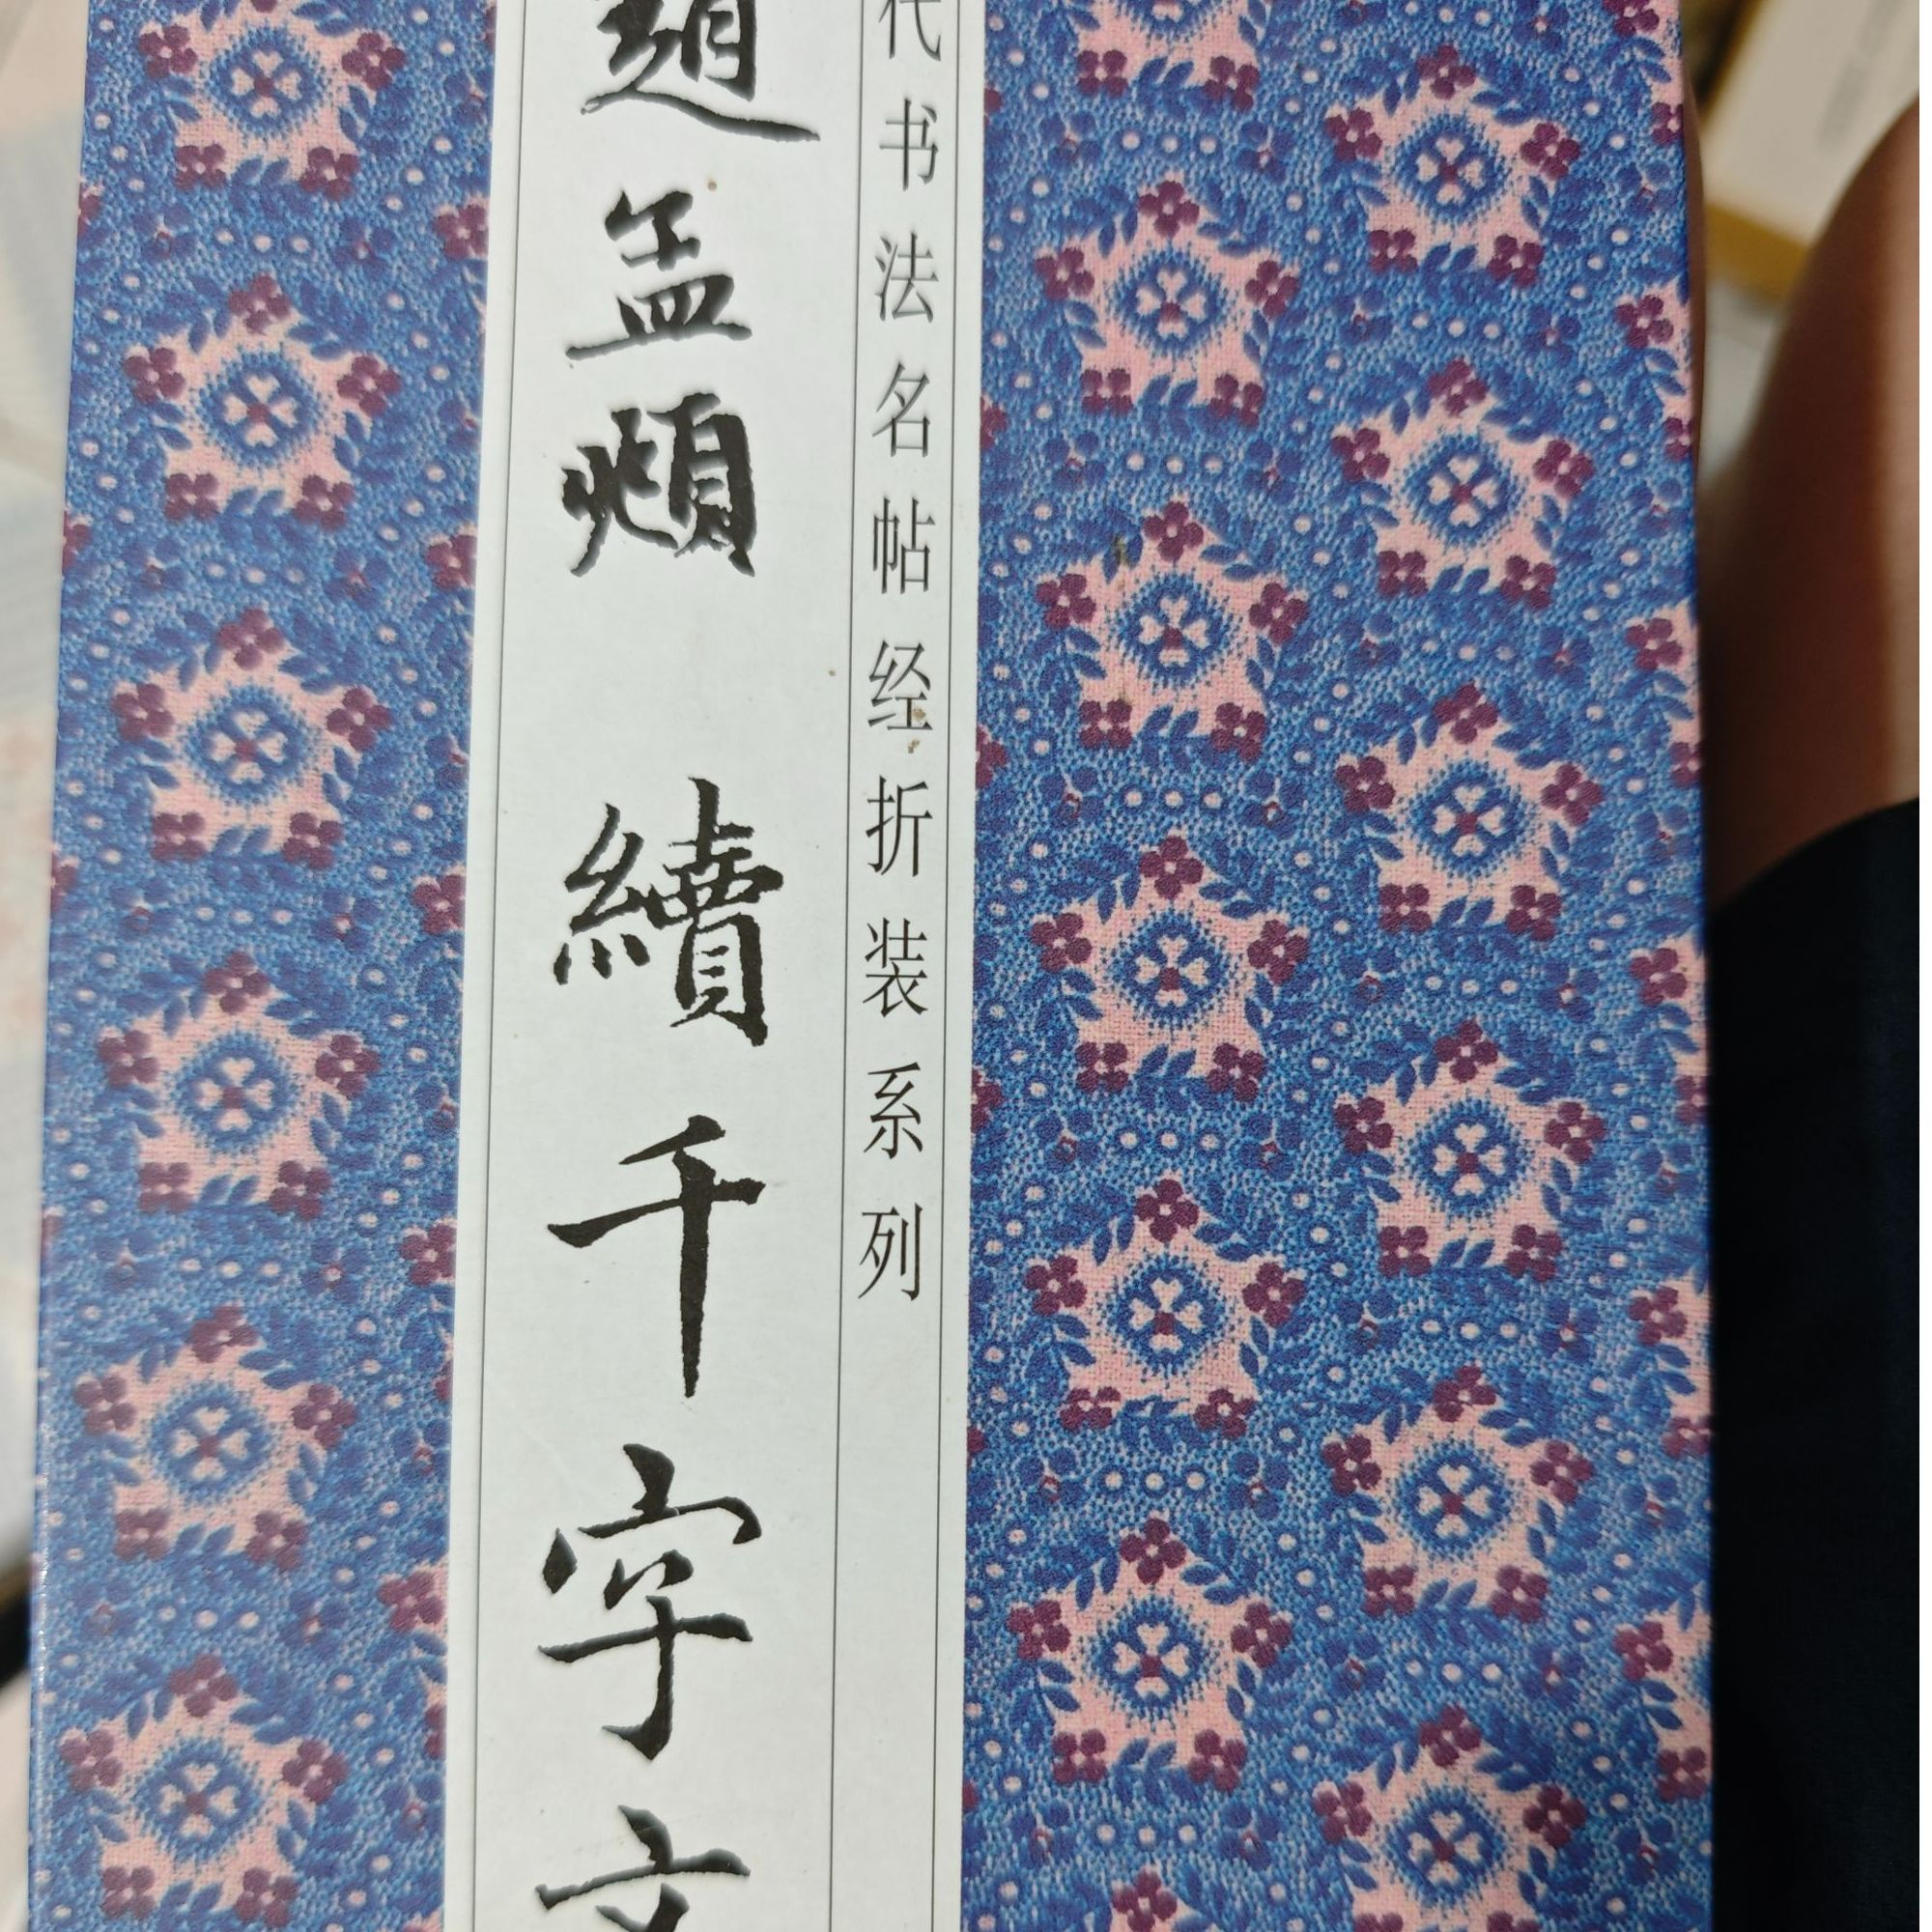 代书法名帖经折装系列
趙孟頫 續千字文